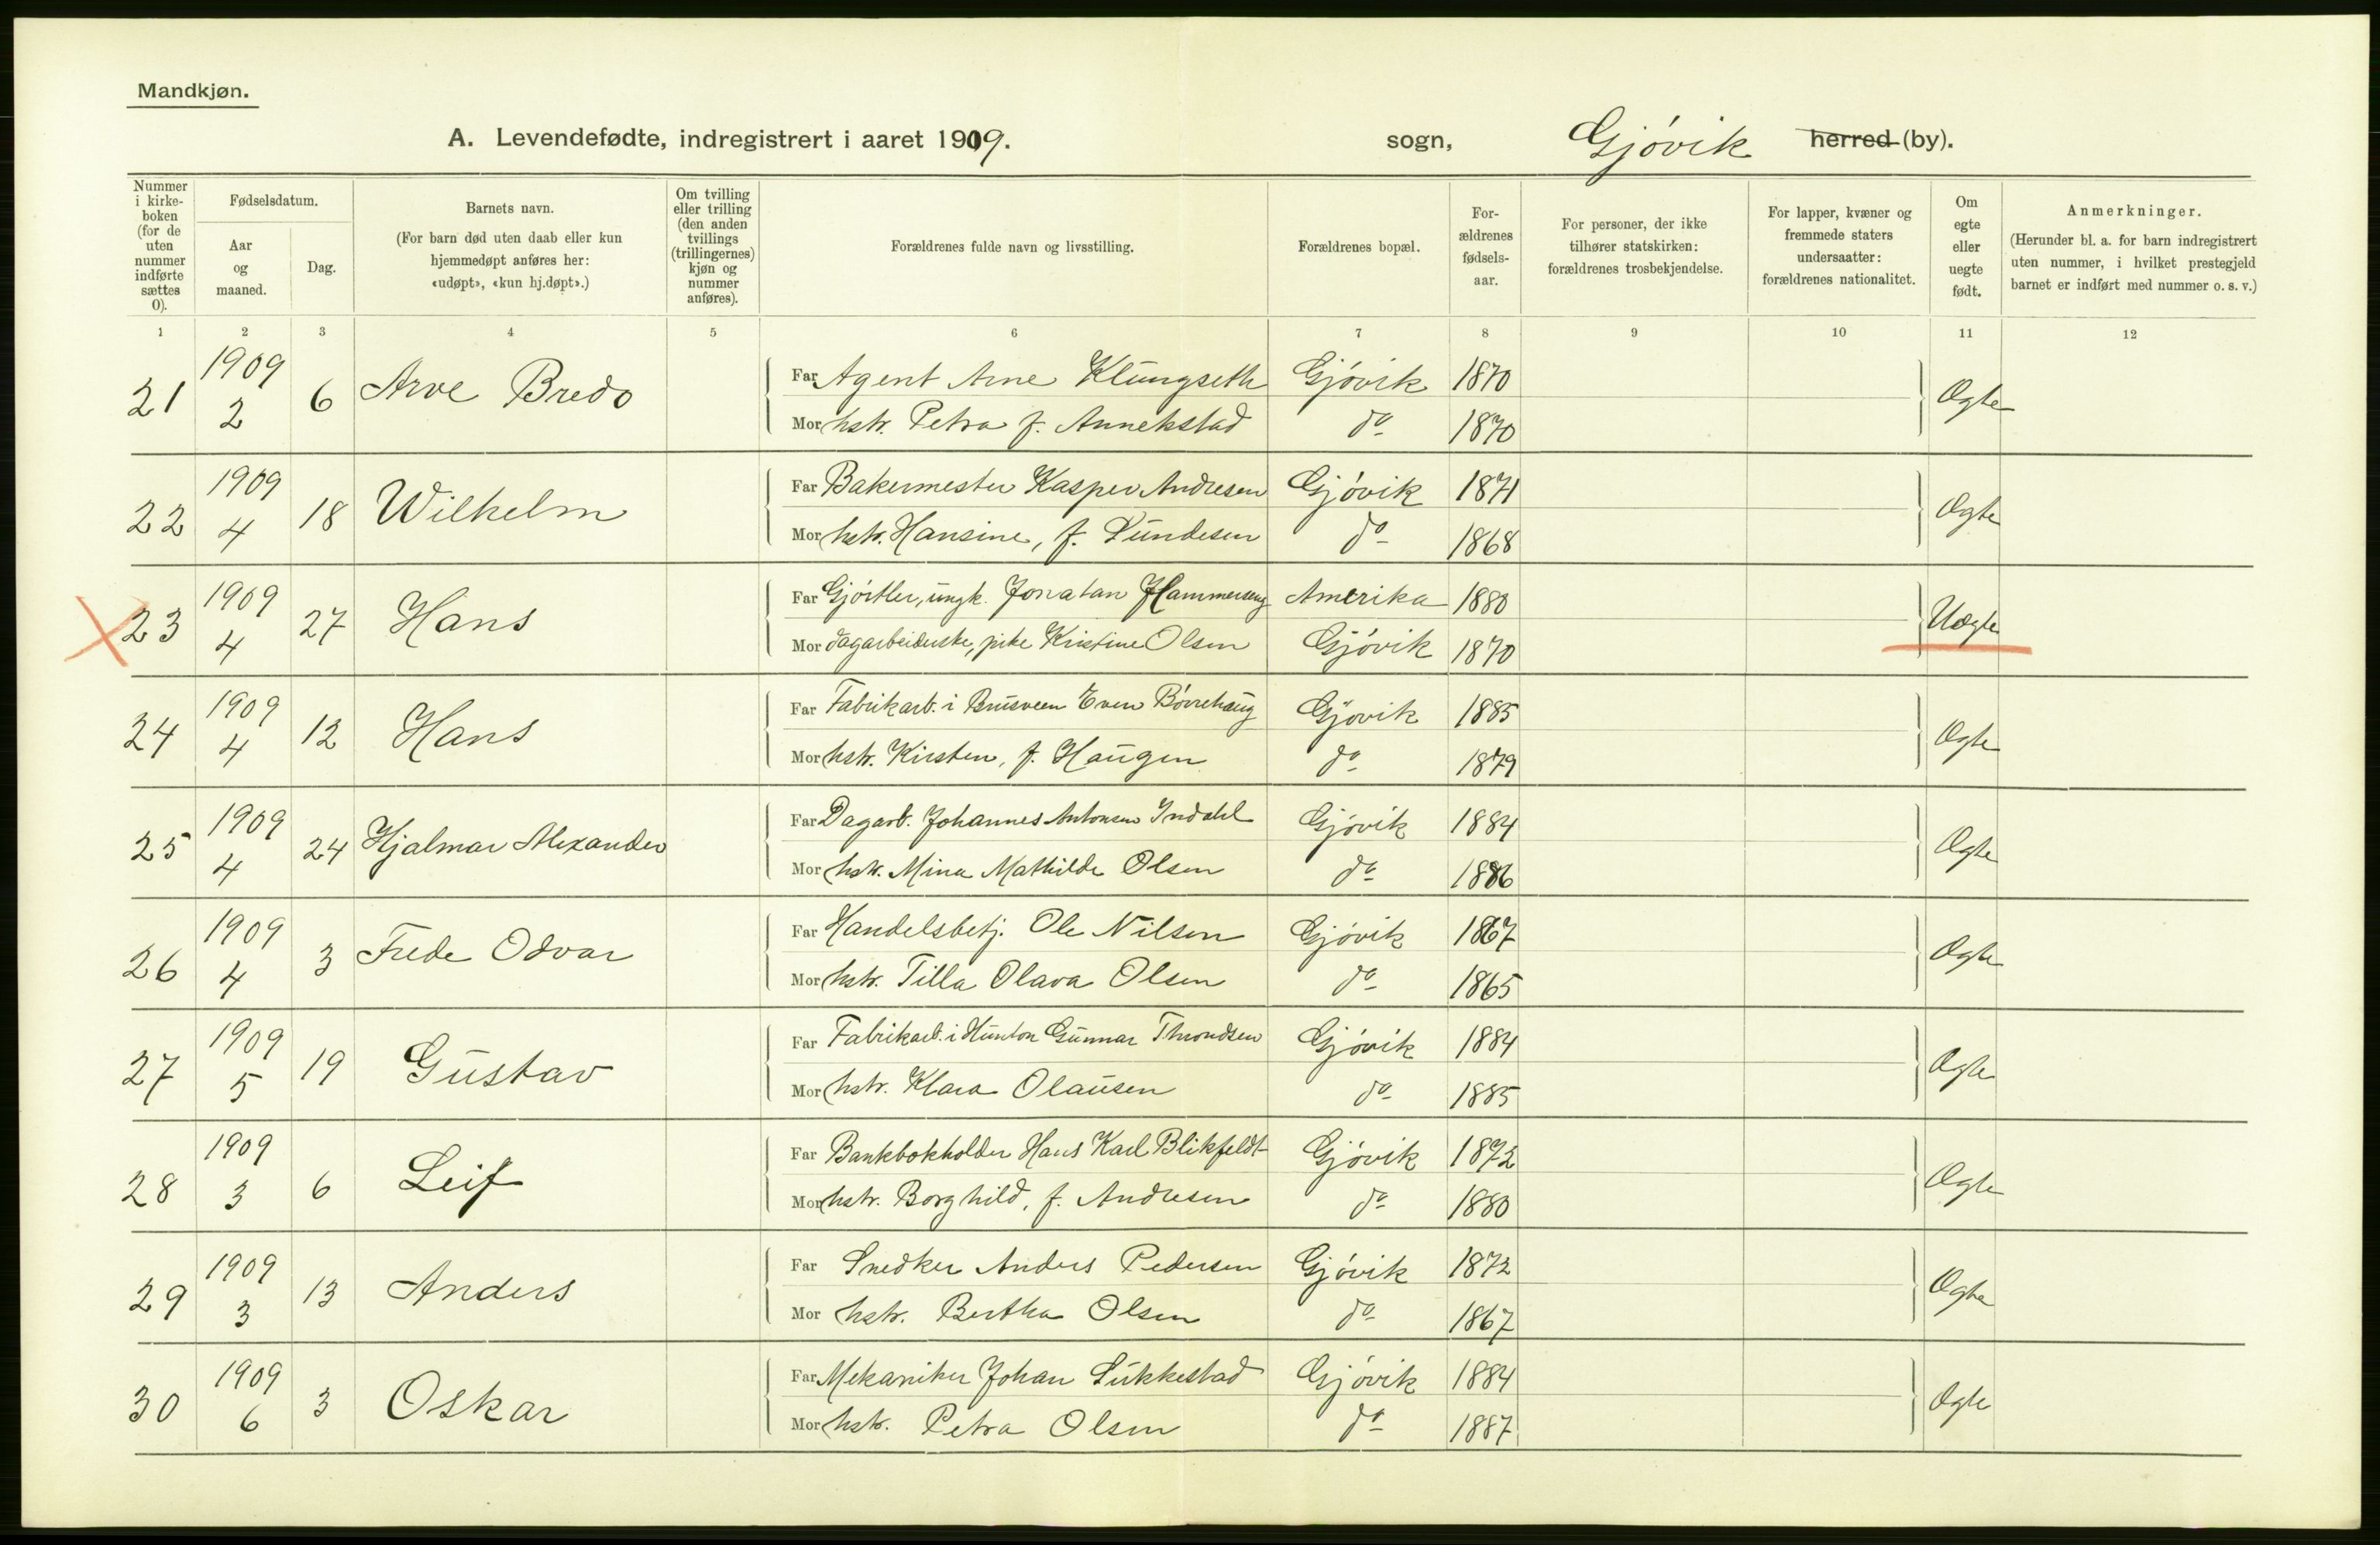 Mandkjøn.
A. Levendefødte, indregistrert i aaret 1909. sogn, Gjövik herred (by).
Nummer i kirke-boken (for de uten nummer indførte sættes 0).
Fødselsdatum.
Aar og maaned.
Dag.
Barnets navn.
(For barn død uten daab eller kun hjemmedøpt anføres her: «udøpt», «kun hj.døpt».)
Om tvilling eller trilling (den anden tvillings (trillingernes) kjøn og nummer anføres).
Forældrenes fulde navn og livsstilling.
Forældrenes bopæl.
For-ældrenes fødsels-aar.
For personer, der ikke tilhører statskirken: forældrenes trosbekjendelse.
For lapper, kvæner og fremmede staters undersaatter: forældrenes nationalitet.
Om egte eller uegte født.
Anmerkninger.
(Herunder bl. a. for barn indregistrert uten nummer, i hvilket prestegjeld barnet er indført med nummer o. s. v.)
1 2 3 4 5 6 7 8 9 10 11 12
21 1909 2 6 Arve Bredo Far Agent Arne Klungseth Gjövik 1870 Ægte
Mor hstr. Petra f. Annekstad do 1870
22 1909 4 18 Wilhelm Far Bakermester Kasper Andresen Gjövik 1871 Ægte
Mor hstr. Hansine, f. Lundesen do 1868
23 1909 4 27 Hans Far Gjörtler, ungk. Jonatan Hammereng Amerika 1880 Uægte
Mor dagarbeiderske, pike Kristine Olsen Gjövik 1870
24 1909 4 12 Hans Far Fabrikarb. i Brusveen Even Börrehaug Gjövik 1885 Ægte
Mor hstr. Kirsten, f. Haugen do 1879
25 1909 4 24 Hjalmar Alexander Far Dagarb. Johannes Antonsen Indahl Gjövik 1884 Ægte
Mor hstr. Mina Mathilde Olsen do 1886
26 1909 4 3 Frede Odvar Far Handelsbetj. Ole Nilsen Gjövik 1867 Ægte
Mor hstr. Tilla Olava Olsen do 1865
27 1909 5 19 Gustav Far Fabrikarb. i Hunton Gunnar Throndsen Gjövik 1884 Ægte
Mor hstr. Klara Olausen do 1885
28 1909 3 6 Leif Far Bankbokholder Hans Karl Blikfeldt Gjövik 1872 Ægte
Mor hstr. Borghild, f. Andresen do 1880
29 1909 3 13 Anders Far Snedker Anders Pedersen Gjövik 1872 Ægte
Mor hstr. Bertha Olsen do 1867
30 1909 6 3 Oskar Far Mekaniker Johan Lukkestad Gjövik 1884 Ægte
Mor hstr. Petra Olsen do 1887